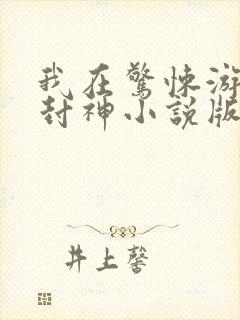 我在驚悚游
封神小説版
井上馨